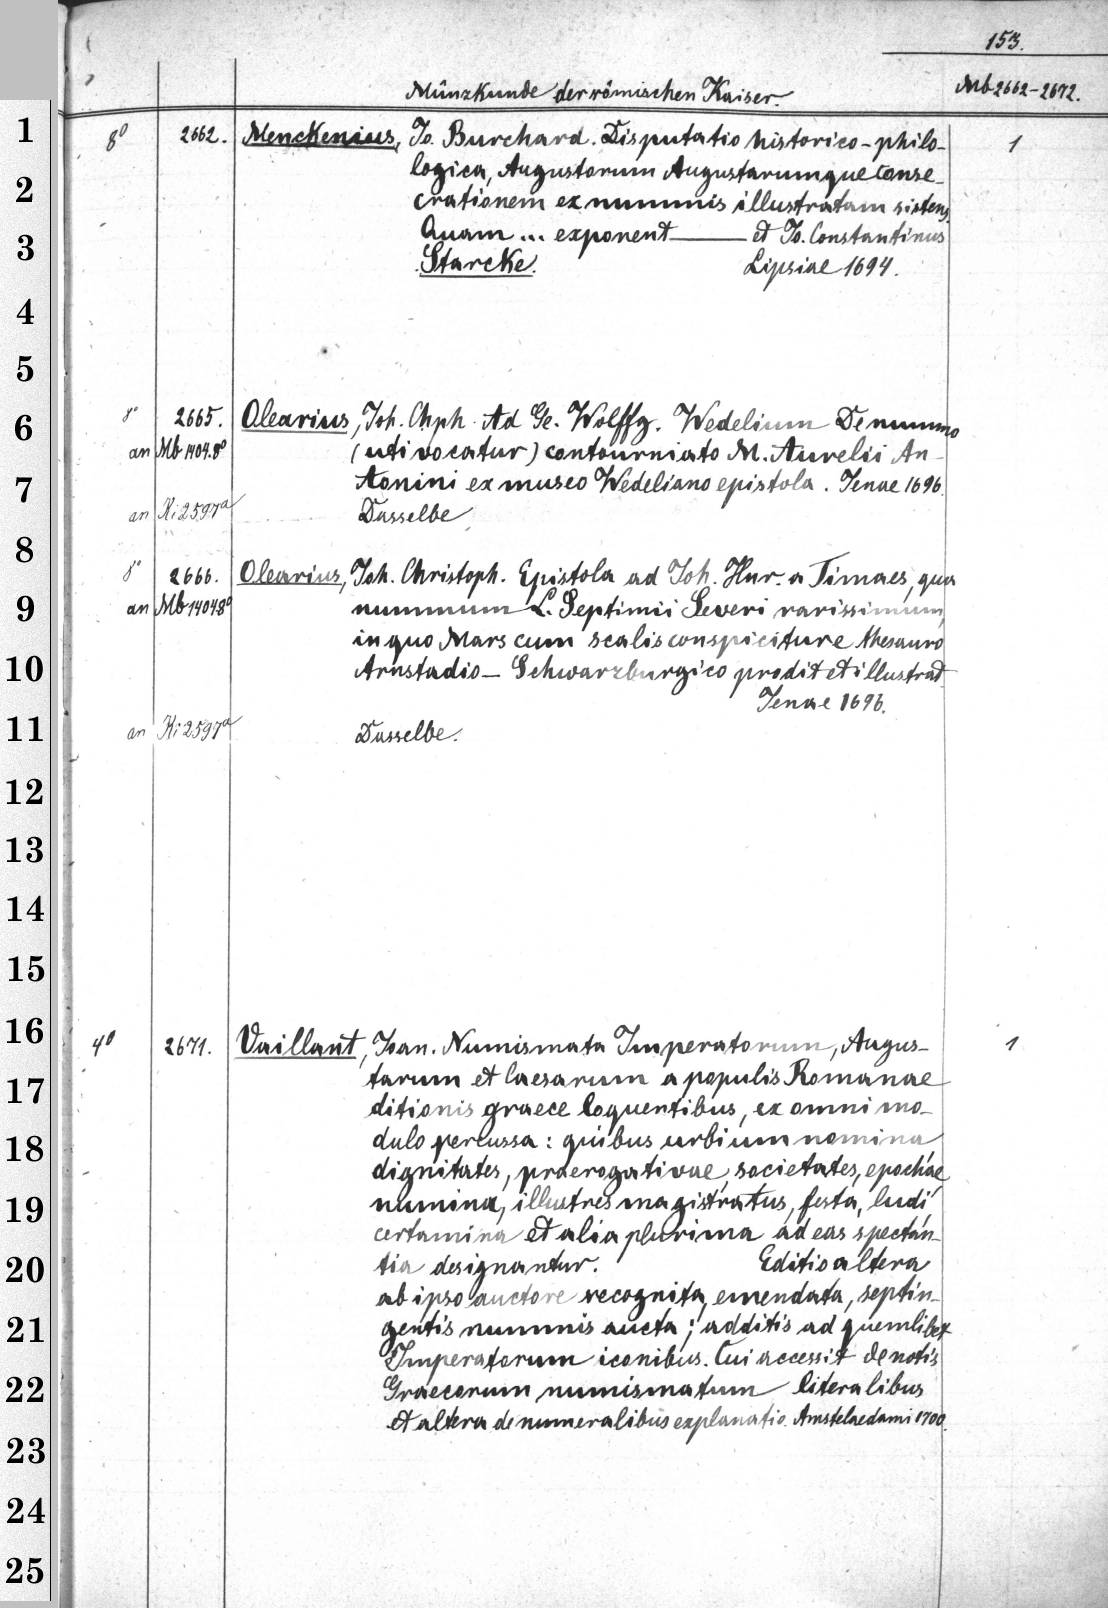 153.
Münzkunde der römischen Kaiser.
Mb 2662-2672.
8° 2662. Menckenius, Jo. Burchard. Disputatio historico-philo- 1
logica, Augustorum Augustarumque conse-
crationem ex nummis illustratam sistens,
Quam ... exponent ——— et Jo. Constantinus
Starcke. Lipsiae 1694.
8° 2665. Olearius, Joh. Chph. Ad Ge. Wolffg. Wedelium De nummo
an Mb 1404.8° (uti vocatur) contourniato M. Aurelii An-
tonini ex museo Wedeliano epistola. Jenae 1696.
an Ki 2597a Dasselbe
8° 2666. Olearius, Joh. Christoph. Epistola ad Joh. Hnr. a Timaes, qua
an Mb 1404 8° nummum L. Septimii Severi rarissimum,
in quo Mars cum scalis conspicitur e thesauro
Arnstadio-Schwarzburgico prodit et illustrat.
Jenae 1696.
an Ki 2597a Dasselbe.
4° 2671. Vaillant, Joan. Numismata Imperatorum, Augus- 1
tarum et Caesarum a populis Romanae
ditionis graece loquentibus, ex omni mo-
dulo percussa: quibus urbium nomina
dignitates, praerogativae, societates, epochae,
numina, illustres magistratus, festa, ludi,
certamina et alia plurima ad eas spectan-
tia designantur. Editio altera
ab ipso auctore recognita, emendata, septin-
gentis nummis aucta; additis ad quemlibet
Imperatorum iconibus. Cui accessit de notis
Graecorum numismatum literalibus
et altera de numeralibus explanatio. Amstelaedami 1700.
1
2
3
4
5
6
7
8
9
10
11
12
13
14
15
16
17
18
19
20
21
22
23
24
25